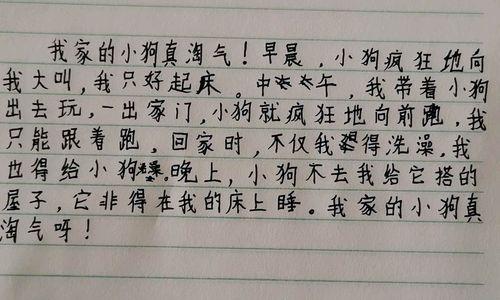 我家的小狗真淘气！早晨，小狗疯狂地向
我大叫，我只好起床。中午，我带着小狗
出去玩，一出家门，小狗就疯狂地向前跑，我
只能跟着跑，回家时，不仅我得洗澡，我
也得给小狗。晚上，小狗不去我给它搭的
屋子，它非得在我的床上睡。我家的小狗真
淘气呀！